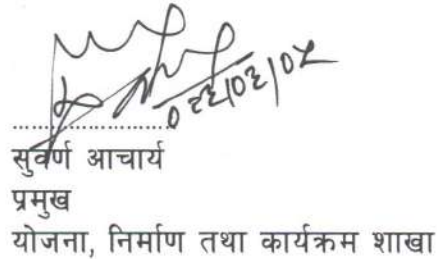 सुवर्ण आचार्य
प्रमुख
योजना, निर्माण तथा कार्यक्रम शाखा